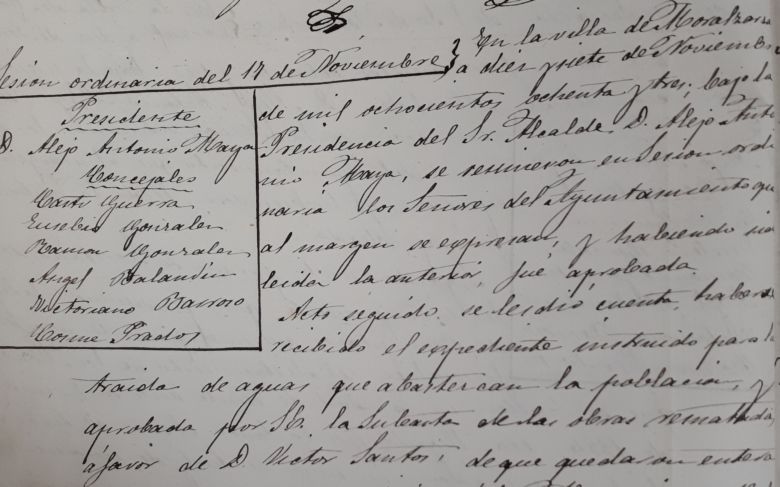 Sesion ordinaria del 17 de Noviembre
Presidente
D. Alejo Antonio Maya
Concejales
Eusebio Gonzalez
Ramon Gonzalez
Angel Balandin
Victoriano Barroso
Cosme Prados
En la villa de Moralzarza
a diez y siete de Noviembre
de mil ochocientos ochenta y tres; bajo la
Presidencia del Sr. Alcalde, D. Alejo Anto
nio Maya, se reunieron en Sesion ordi
naria los Señores del Ayuntamiento que
al margen se expresan, y habiendo sido
leida la anterior, fué aprobada.
Acto seguido, se les dió cuenta, haberse
recibido el expediente instruido para la
traida de aguas que abastezcan la poblacion, y
aprobada por la Subasta de las obras rematadas
á favor de D. Victor Santos; de que quedaron entera